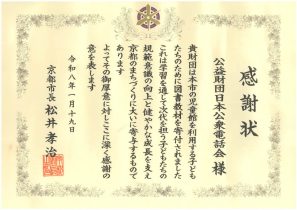 感謝状
公益財団日本公衆電話会 様
貴財団は本市の児童館を利用する子ども
たちのために図書教材を寄付されました
これは学習を通して次代を担う子どもたちの
規範意識の向上と健やかな成長を支え
京都のまちづくりに大いに寄与するもので
あります
よってその御厚意に対しここに深く感謝の
意を表します
令和八年一月十九日
京都市長 松井孝治